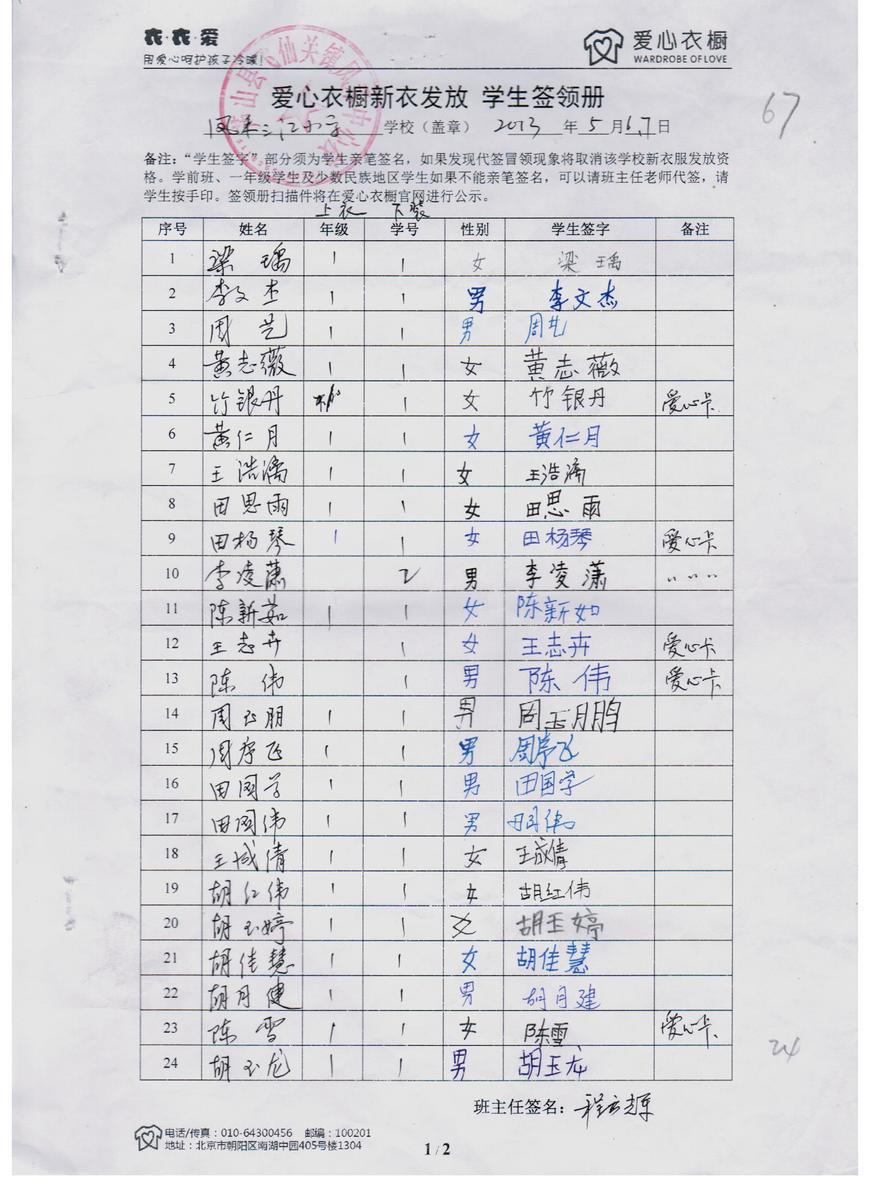 衣·衣·爱
用爱心呵护孩子冷暖!
爱心衣橱
WARDROBE OF LOVE
爱心衣橱新衣发放 学生签领册
67
凤禾三江小学 学校（盖章） 2013 年 5 月 6.7 日
备注：“学生签字”部分须为学生亲笔签名，如果发现代签冒领现象将取消该学校新衣服发放资
格。学前班、一年级学生及少数民族地区学生如果不能亲笔签名，可以请班主任老师代签，请
学生按手印。签领册扫描件将在爱心衣橱官网进行公示。
上衣 下装
序号 姓名 年级 学号 性别 学生签字 备注
1 梁瑀 1 1 女 梁瑀
2 李文杰 1 1 男 李文杰
3 周艺 1 1 男 周艺
4 黄志薇 1 1 女 黄志薇
5 竹银丹 1 女 竹银丹 爱心卡
6 黄仁月 1 1 女 黄仁月
7 王浩漓 1 1 女 王浩漓
8 田思雨 1 1 女 田思雨
9 田杨琴 1 1 女 田杨琴 爱心卡
10 李凌潇 2 男 李凌潇 〃 〃 〃
11 陈新茹 1 1 女 陈新如
12 王志卉 1 女 王志卉 爱心卡
13 陈伟 1 男 陈伟 爱心卡
14 周玉朋 1 1 男 周玉月鹏
15 周序飞 1 1 男 周序飞
16 田国学 1 1 男 田国学
17 田国伟 1 1 男 田国伟
18 王城倩 1 1 女 王成倩
19 胡红伟 1 1 女 胡红伟
20 胡玉婷 1 1 女 胡玉婷
21 胡佳慧 1 1 女 胡佳慧
22 胡月健 1 1 男 胡月建
23 陈雪 1 1 女 陈雪 爱心卡
24 胡玉龙 1 1 男 胡玉龙
24
班主任签名：
电话/传真：010-64300456 邮编：100201
地址：北京市朝阳区南湖中园405号楼1304
1 / 2